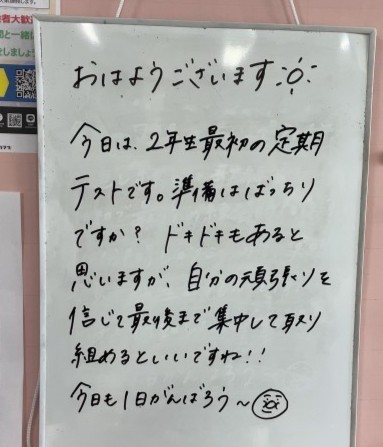 者大歓
間と一緒に
をしましょう
おはようございます
今日は、2年生最初の定期
テストです。準備はばっちり
ですか? ドキドキもあると
思いますが、自分の頑張りを
信じて最後まで集中して取り
組めるといいですね!!
今日も1日がんばろう〜